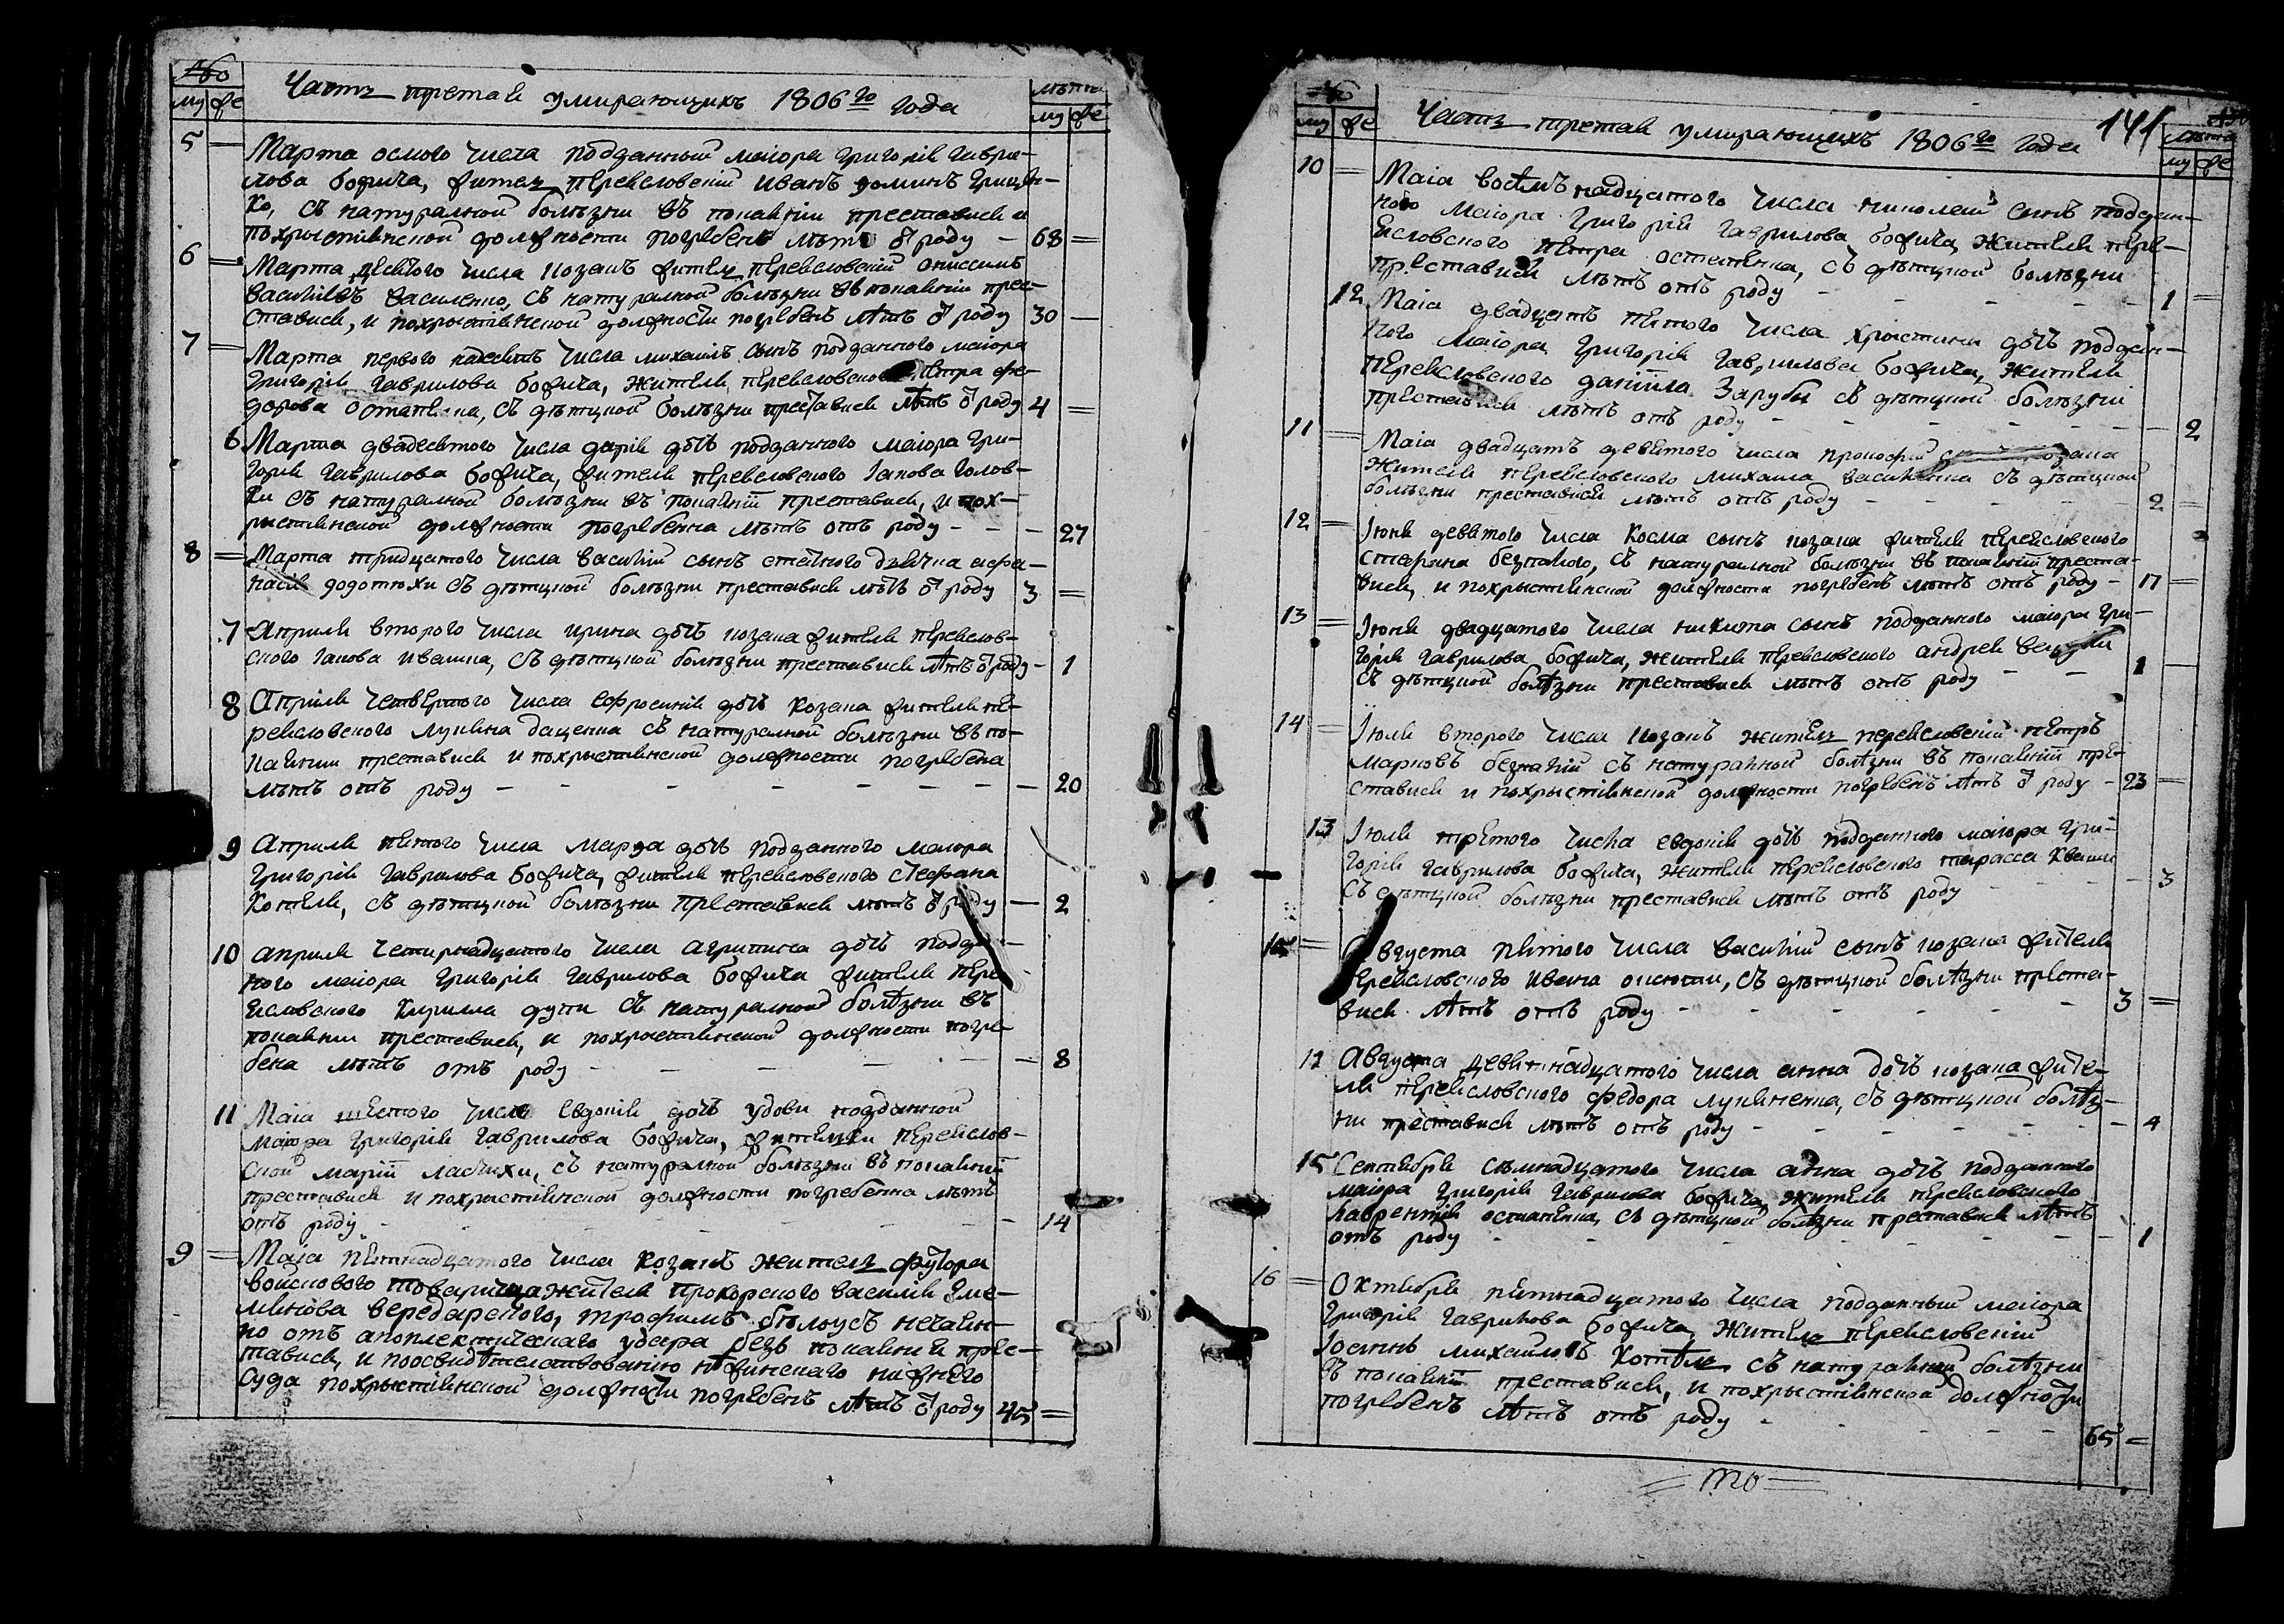 Часть третая умирающихъ 1806го года
му фе
лѣта
му фе
5 Марта осмого числа подданный маіора Григорія Гаври-
лова Божича, житель переясловскій Иванъ Доминъ Грицен-
ко, съ натуралной болѣзни въ покаяніи преставися и
похрыстіянской должности погребенъ лѣтъ ѿ роду – 68
6 Марта девятого числа козакъ житель переясловскій Онисимъ
Василіевъ Василенко, съ натуралной болѣзни въ покаяніи прес-
тавися, и похрыстіянской должности погребенъ лѣтъ ѿ роду 30
7 Марта первого числа михаилъ сынъ подданного маіора
Григорія Гаврилова Божича, жителя переясловского Петра Фе-
дорова Остапенка, съ дѣтцкой болѣзни преставися лѣтъ ѿ роду 4
6 Марта двадесятого числа дарія дочь подданного маіора Гри-
горія Гаврилова Божича, жителя переясловского Іакова Голов-
ки съ натуралной болѣзни въ покаяніи преставися, и пох-
рыстіянской должности погребенна лѣтъ отъ роду – – – 27
8 Марта тридцатого числа Василій сынъ дячка Афа-
насія додотюхи съ дѣтцкой болѣзни преставися лѣтъ ѿ роду 3
7 Априля второго числа ирина дочь козака жителя переяслов-
ского Іакова Ивашка, съ дѣтцкой болѣзни преставися лѣтъ ѿ роду – 1
8 Априля четвертого числа Ефросинія дочь козака жителя пе-
реясловского Лукяна Даценка съ натуралной болѣзни въ по-
каянии преставися и похрыстіянской должности погребена
лѣтъ отъ роду – – – – – – – – 20
9 Априля пятого числа Марѳа дочь подданного маіора
Григорія Гаврилова Божича, жителя переясловского Стефана
Котеля, съ дѣтцкой болѣзни преставися лѣтъ ѿ роду – 2
10 априля четирнадцятого числа агрипина дочь подда-
ного маіора Григорія Гаврилова Божича жителя пере-
ясловского Кирилла съ натуралной болѣзни въ
покаянии преставися, и похрыстіянской должности погре-
бена лѣтъ отъ роду – – – – – – 8
11 Маіа шестого числа Евдокія дочь удови подданной
Маіора Григорія Гаврилова Божича, жителки переяслов-
ской маріи съ натуралной болѣзни въ покаяніи
преставися и похрыстіянской должности погребенна лѣтъ
отъ роду – – – – – – 14
9 Маіа пятнадцатого числа Козакъ житель футора
войскового товарища жителя прохорского Василія Еме-
лянова Вередарского, трофимъ бѣлоусъ нечаян-
но отъ апоплектическаго удара безъ покаянія прес-
тавися, и поосвидѣтелствованію нѣжинскаго нижнего
Суда похрыстіянской должности погребенъ лѣтъ ѿ роду 45
Часть третая умирающихъ 1806го года
141
му фе
лѣта
му фе
10 Маіа восемънадцатого числа николай сынъ поддан-
ного Маіора Григорія Гаврилова Божича жителя пере-
ясловского Петра остапенка, съ дѣтцкой болѣзни
преставися лѣтъ отъ роду – – – – – 1
12 Маіа двадцать пятого числа хрыстина дочь поддан-
ного Маіора Григорія Гаврилова Божича, жителя
переясловского даніила Зарубы съ дѣтцкой болѣзни
преставися лѣтъ отъ роду – – – – – 2
11 Маіа двадцать девятого числа прокофій козака
жителя переясловского Михаила Василенка съ дѣтцкой
болѣзни преставися лѣтъ отъ роду – – – – 2
12 Іюня девятого числа Косма сынъ козака жителя переясловского
стефана безпалого, съ натуралной болѣзни въ покаяніи преста-
вися, и похрыстіянской должности погребенъ лѣтъ отъ роду – 17
13 Іюня двадцатого числа никита сынъ подданного маіора Гри-
горія Гаврилова Божича, жителя переясловского андрея
съ дѣтцкой болѣзни преставися лѣтъ отъ роду – – 1
14 Іюля второго числа козакъ житель переясловскій петръ
Марковъ съ натуралной болѣзни въ покаяніи пре-
ставися и похрыстіянской должности погребенъ лѣтъ ѿ роду – 23
13 Іюля третого числа евдокія дочь подданного маіора Гри-
горія Гаврилова Божича, жителя переясловского тарасса Кваши
съ дѣтцкой болѣзни преставися лѣтъ отъ роду – – – 3
Августа пятого числа Василій сынъ козака жителя
переясловского Ивана съ дѣтцкой болѣзни преста-
вися лѣтъ отъ роду – – – – – – 3
Августа девятнадцатого числа анна дочь козака жите-
ля переясловского федора Лукяненка, съ дѣтцкой болѣз-
ни преставися лѣтъ отъ роду – – – – – 4
15 Сентября семнадцатого числа анна дочь подданного
маіора Григорія Гаврилова Божича, жителя переясловского
лаврентія остапенка, съ дѣтцкой болѣзни преставися лѣтъ
отъ роду – – – – – – 1
16 Октября пятнадцатого числа подданный маіора
Григорія Гаврилова Божича, житель переясловскій
Іоаннъ михайловъ Котель съ натуралной болѣзни
въ покаяніи преставися, и похрыстіянской должности
погребенъ лѣтъ отъ роду – – – – 65